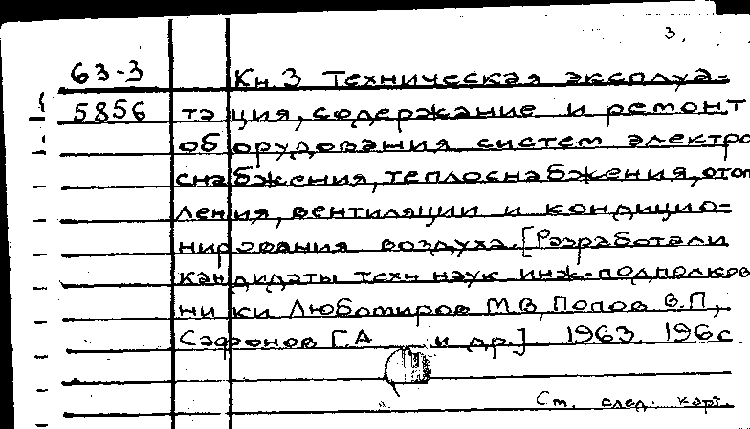 3.
63-3 Кн.3 Техническая эксплуа=
5856 тация, содержание и ремонт
оборудования систем электро
снабжения, теплоснабжения, отоп
ления, вентиляции и кондицио=
нирования воздуха. [Разработали
кандидаты техн наук инж-подполков
ники Любомиров М.В, Попов В.П,
Сафронов Г.А и др.] 1963. 196с
См. след. карт.